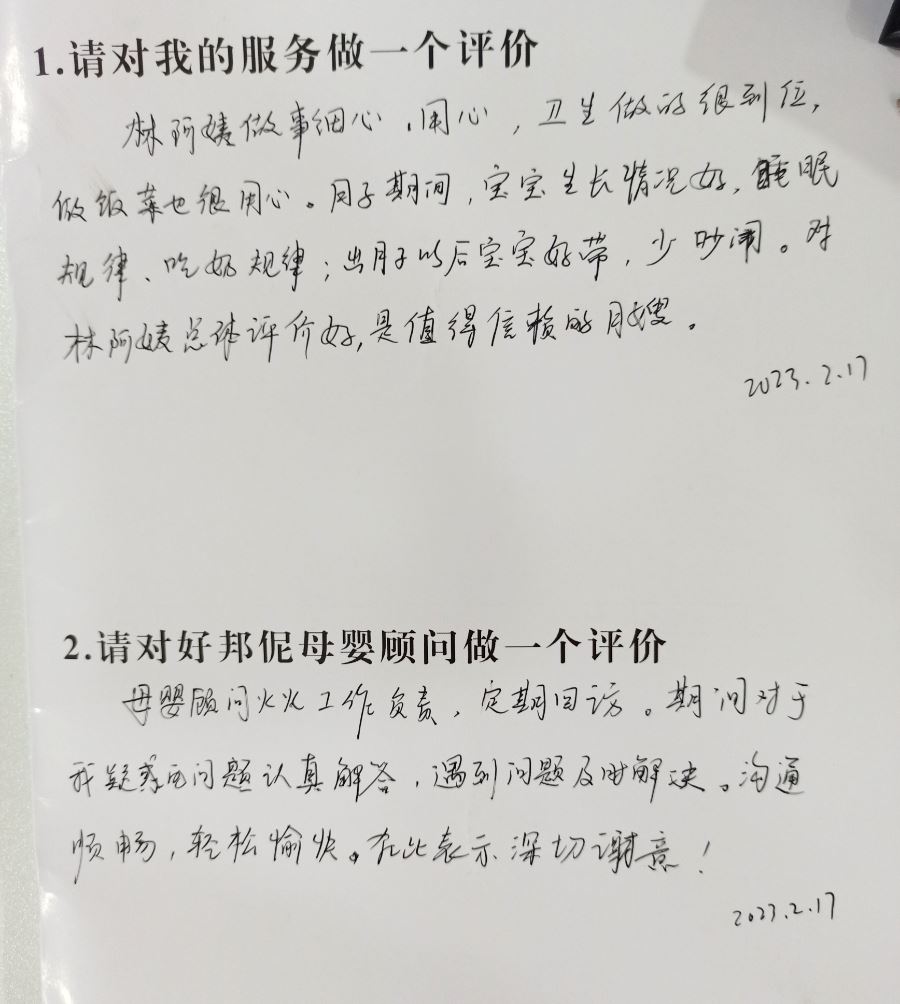 1.请对我的服务做一个评价
林阿姨做事细心、用心，卫生做的很到位，
做饭菜也很用心。月子期间，宝宝生长情况好，睡眠
规律、吃奶规律；出月子以后宝宝好带，少吵闹。对
林阿姨总体评价好，是值得信赖的月嫂。
2023.2.17
2.请对好邦伲母婴顾问做一个评价
母婴顾问火火工作负责，定期回访。期间对于
我疑惑的问题认真解答，遇到问题及时解决。沟通
顺畅，轻松愉快。在此表示深切谢意！
2023.2.17